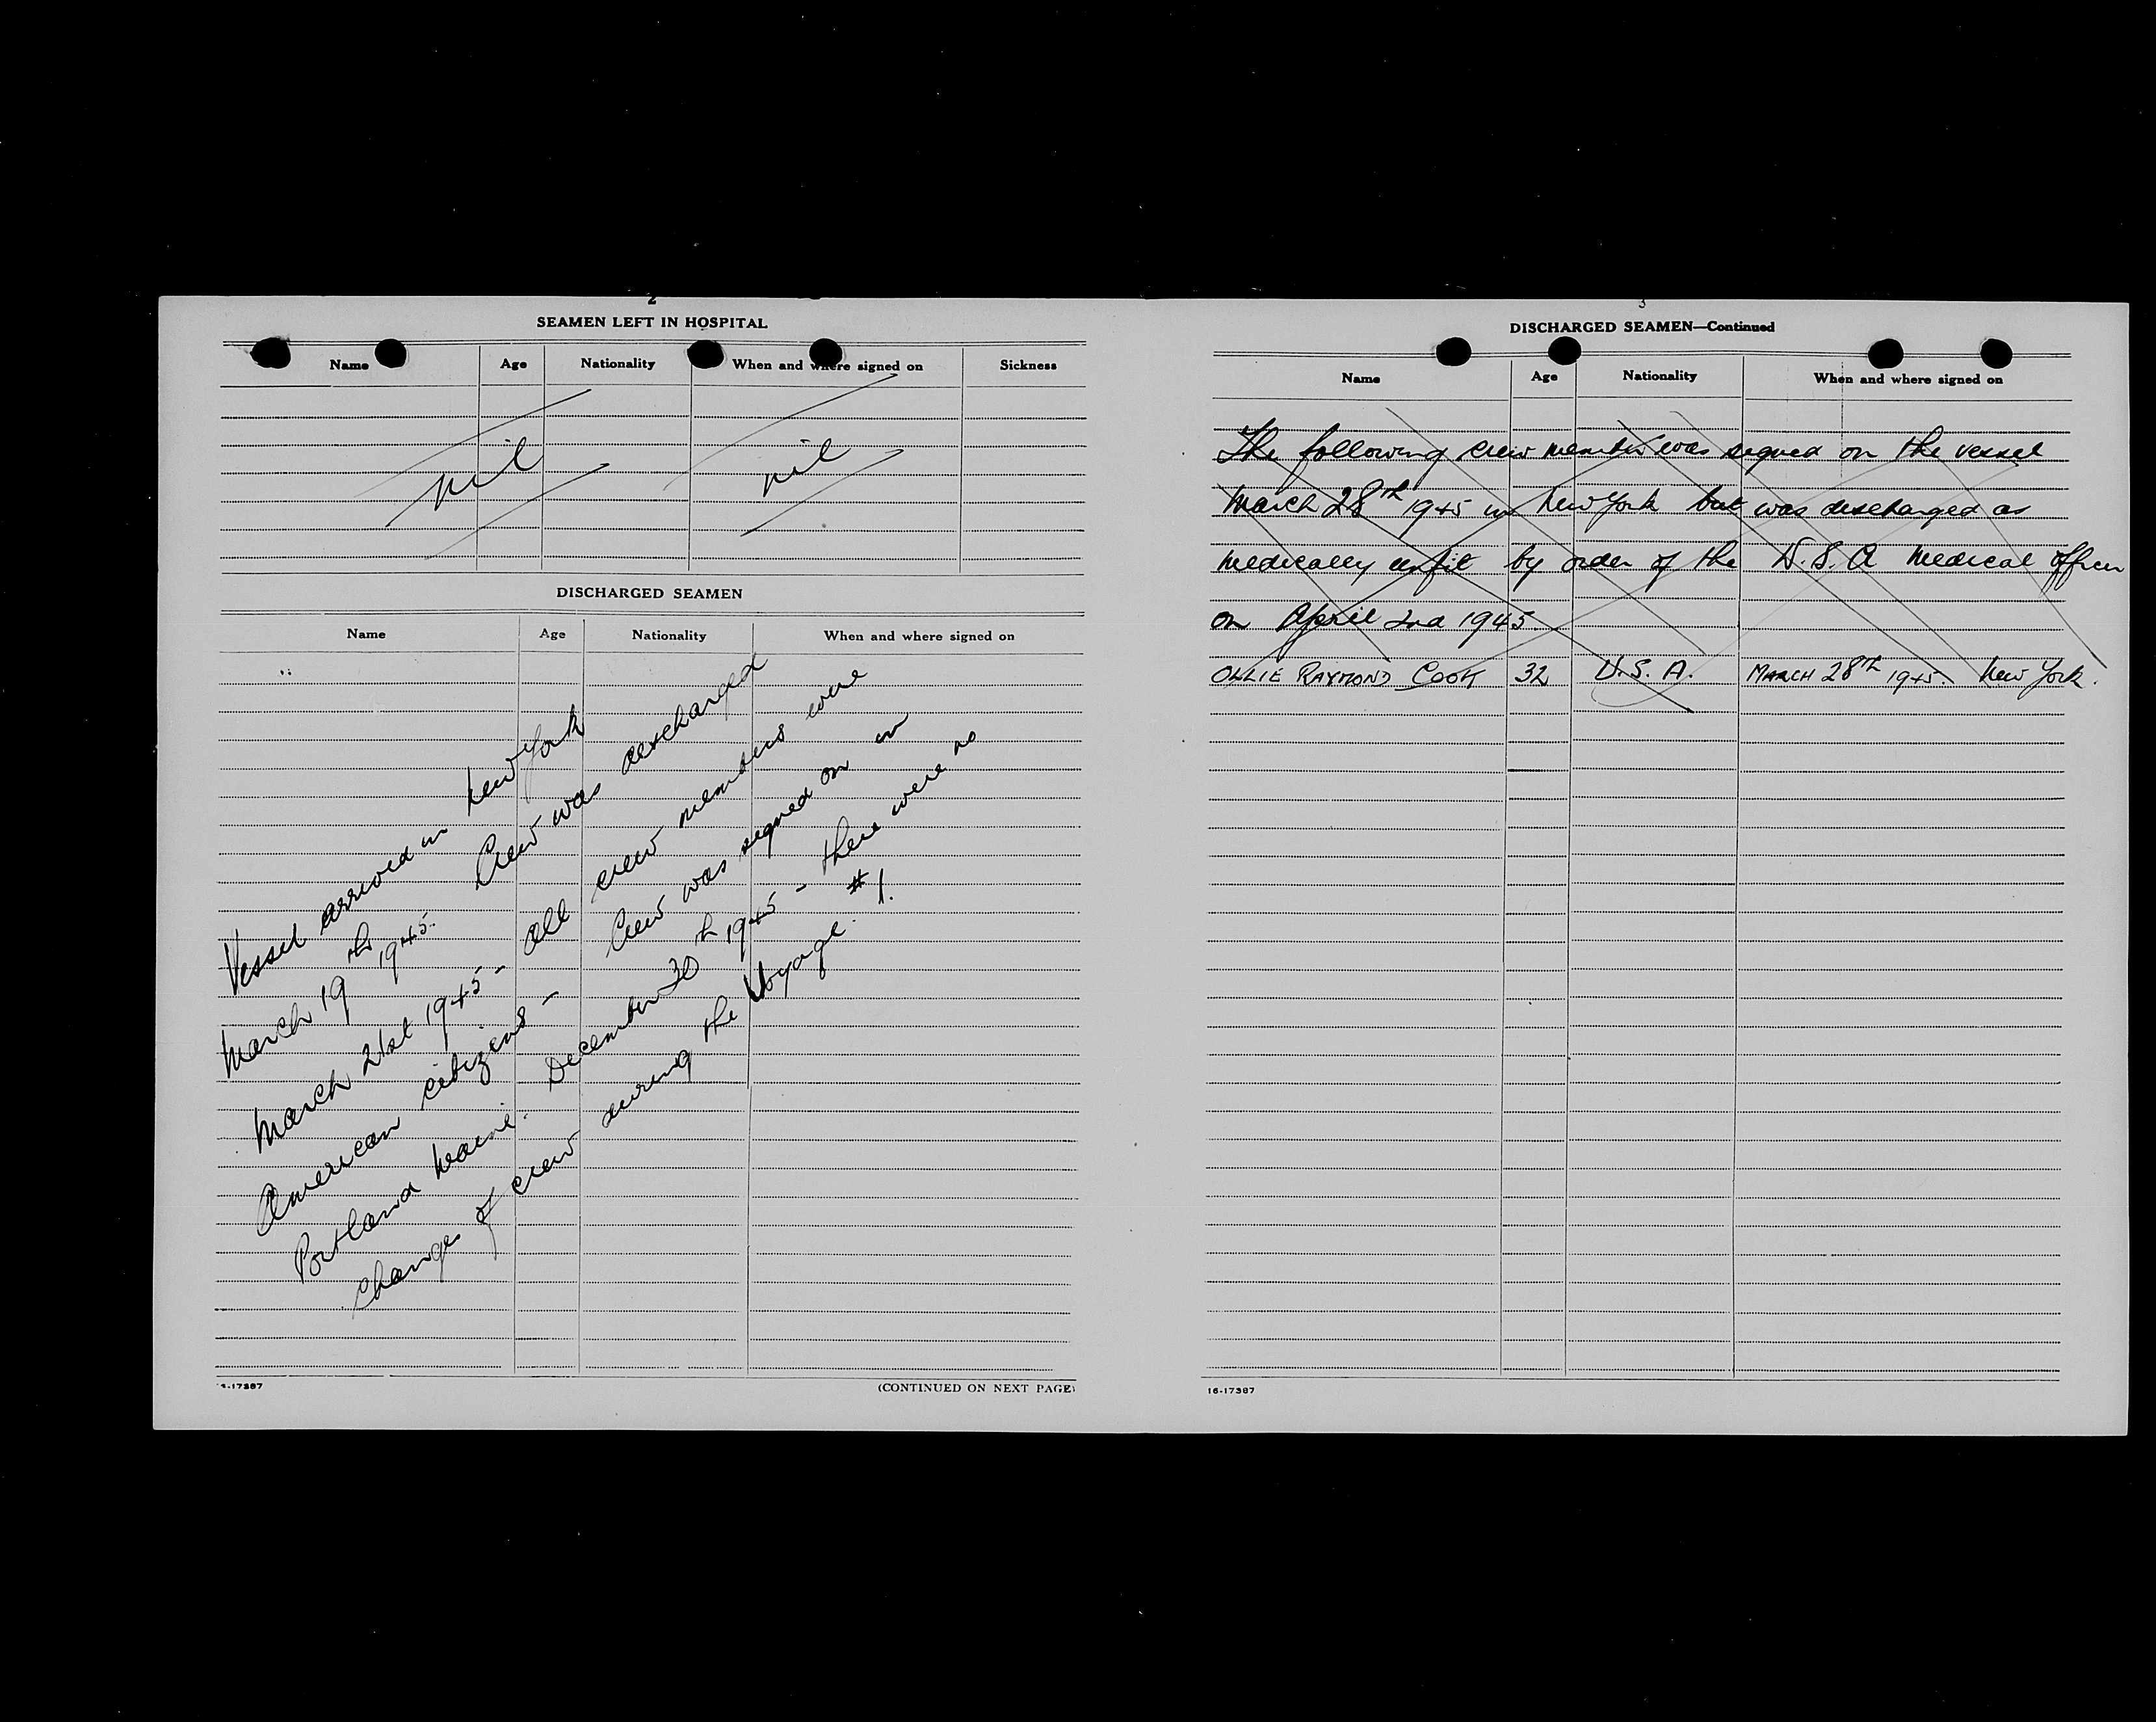 2
SEAMEN LEFT IN HOSPITAL
Name Age Nationality When and where signed on Sickness
nil nil
DISCHARGED SEAMEN
Name Age Nationality When and where signed on
Vessel arrived in New York
March 19th 1945. Crew was discharged
March 21st 1945 - all crew members were
American citizens - Crew was signed on in
Portland Maine. December 30th 1945 - there were no
changes of crew during the Voyage #1.
(CONTINUED ON NEXT PAGE)
3
DISCHARGED SEAMEN—Continued
Name Age Nationality When and where signed on
The following crew member was signed on the vessel
March 28th 1945 in New York but was discharged as
medically unfit by order of the W.S.A Medical Officer
on April 2nd 1945
OLLIE RAYMOND COOK 32 U.S.A. MARCH 28TH 1945. New York.
16-17387